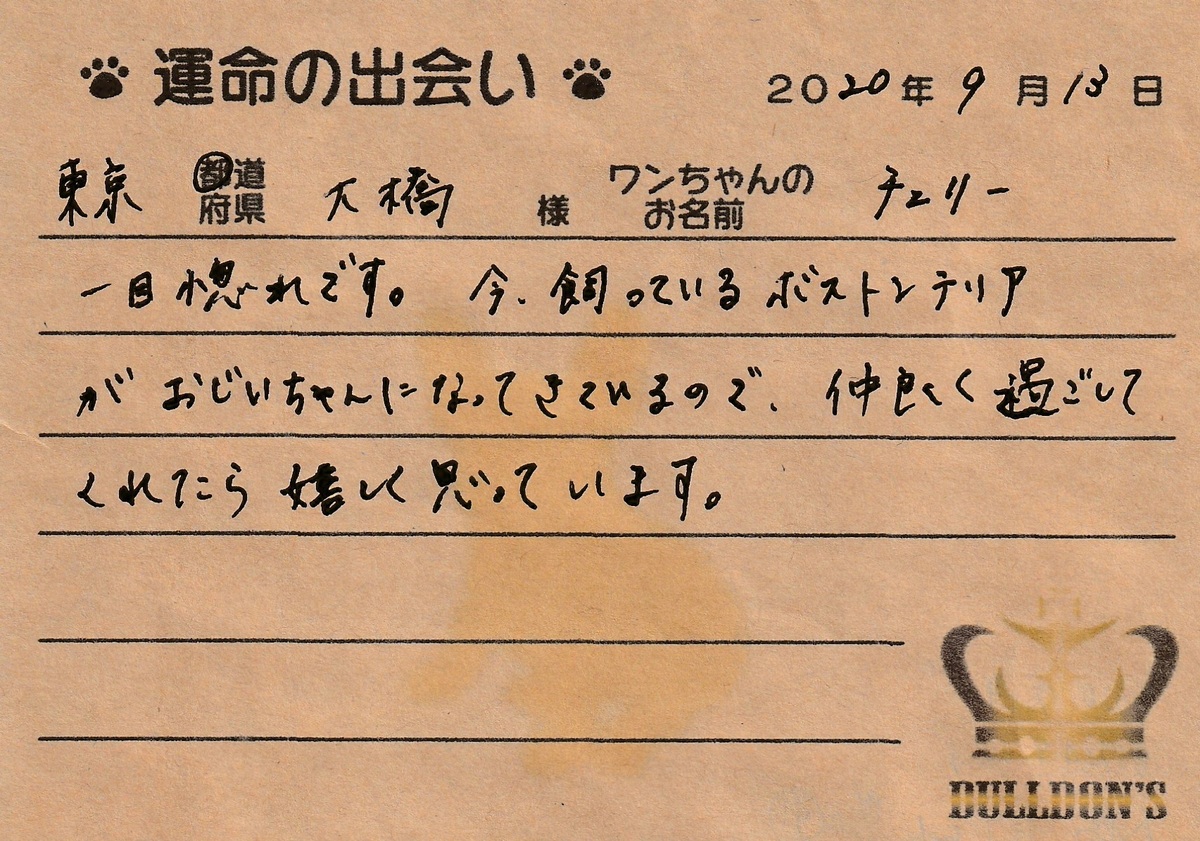 運命の出会い 2020年9月13日
東京 都道府県 大橋 様 ワンちゃんのお名前 チェリー
一目惚れです。 今、飼っているボストンテリア
がおじいちゃんになってきているので、仲良く過ごして
くれたら嬉しく思っています。
DULLDON'S